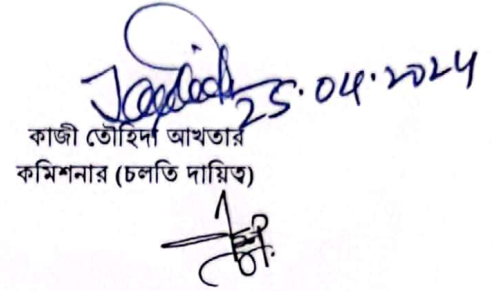 25.04.2024
কাজী তৌহিদা আখতার
কমিশনার (চলতি দায়িত্ব)